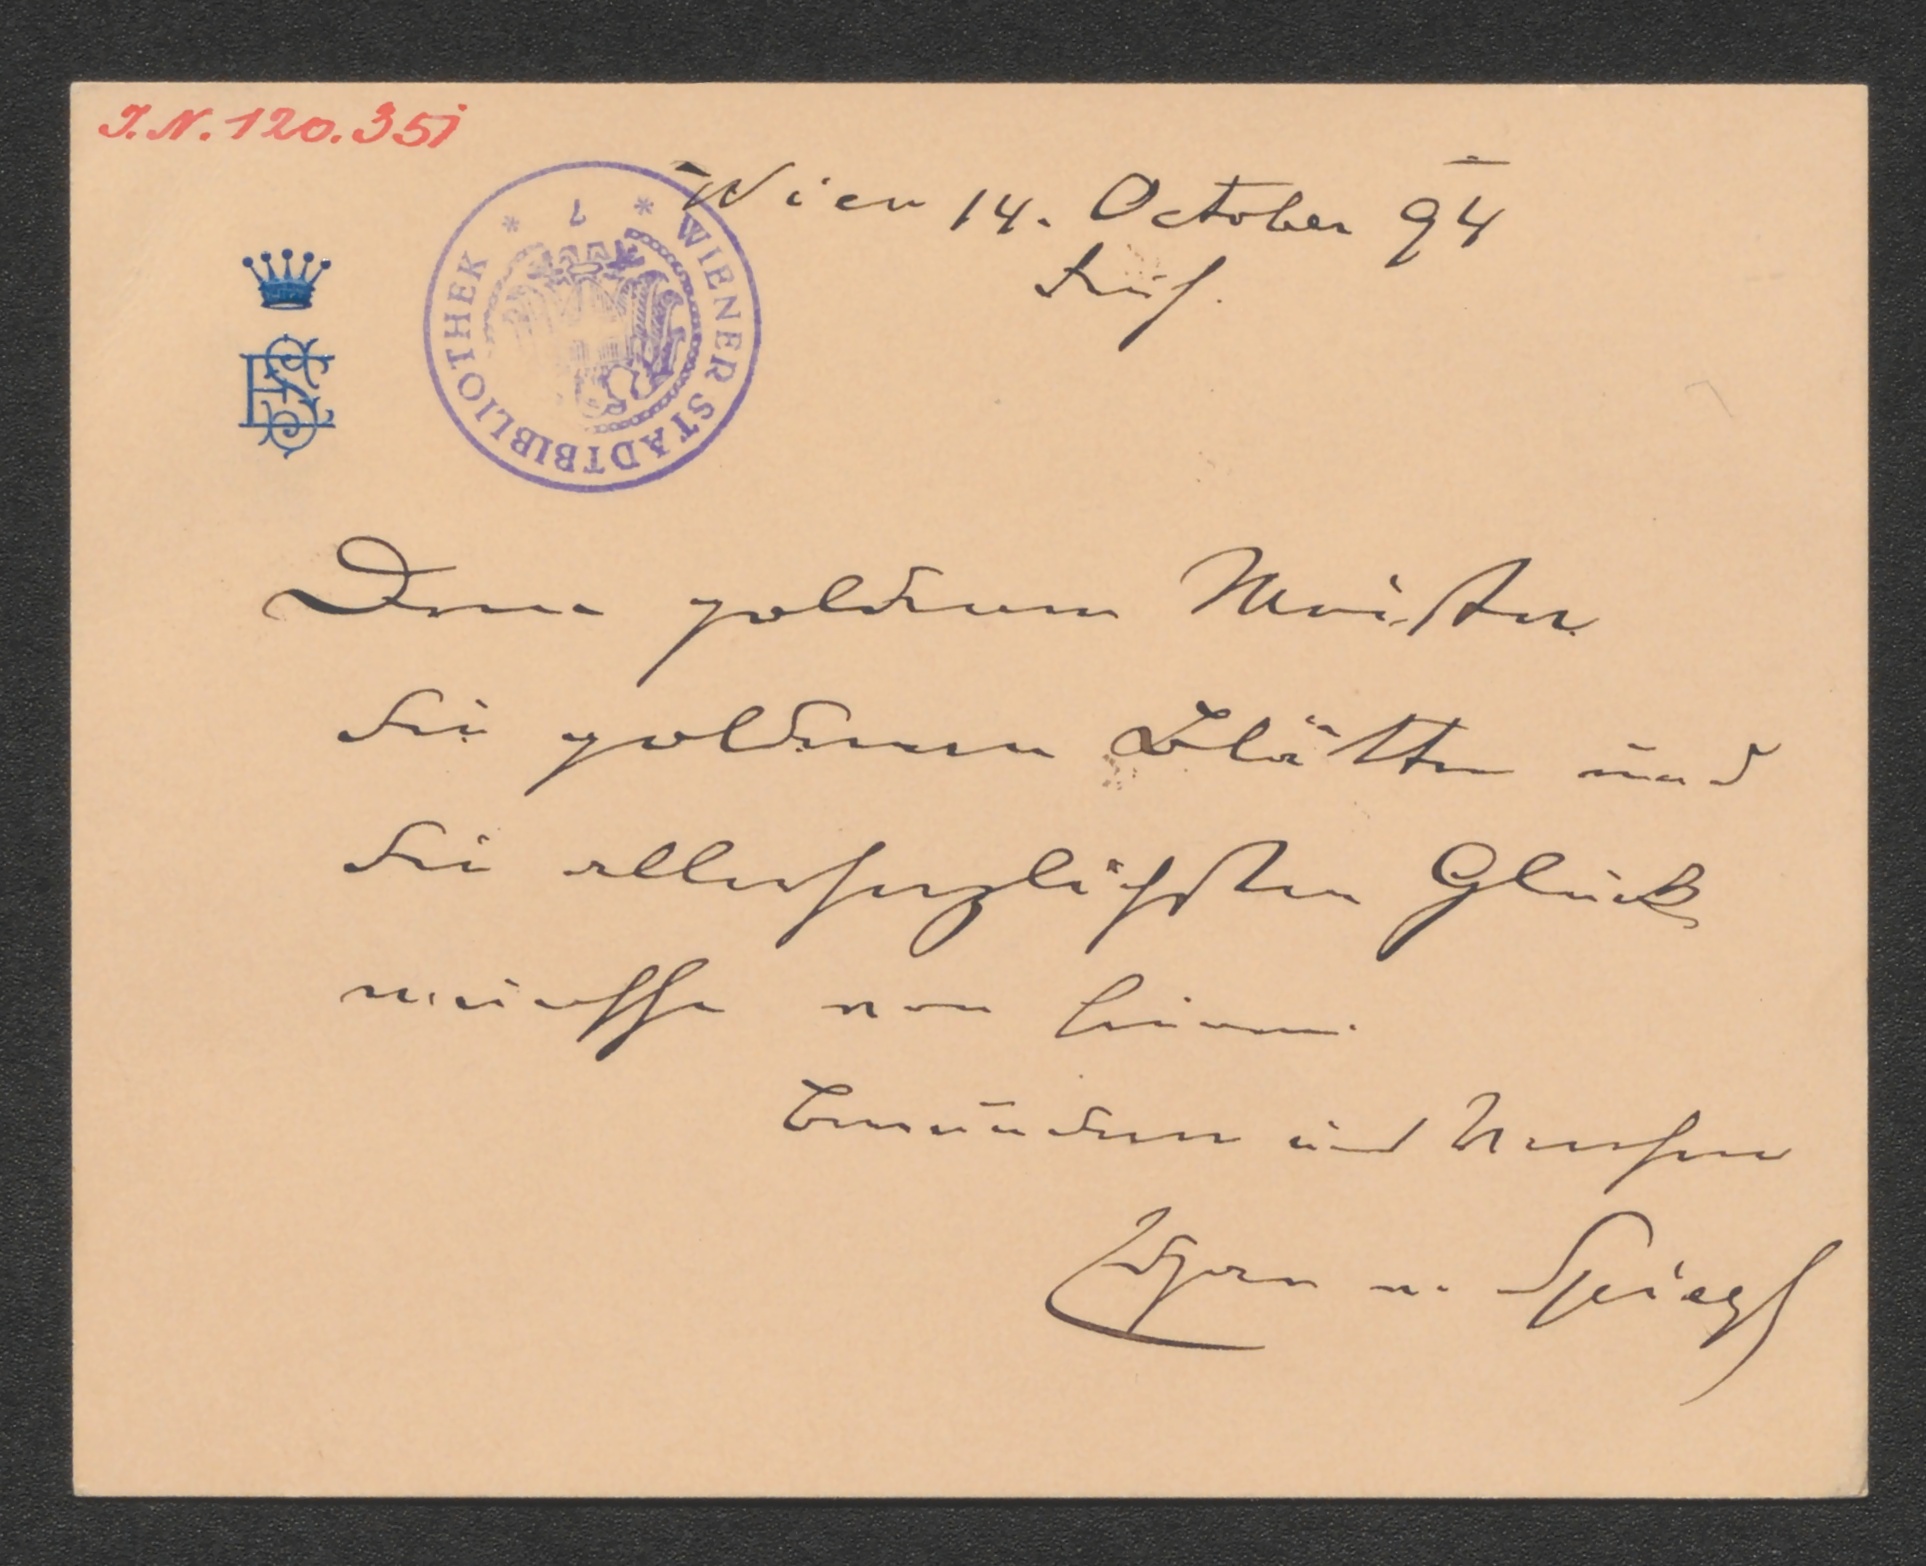 I.N. 120.351
Wien 14. October 94
Früh.
* WIENER STADTBIBLIOTHEK * 7
ES
Dem goldenen Meister
die goldenen Blätter und
die allerherzlichsten Glück
wünsche von seinem
Bewunderer und Verehrer
Edgar v. Spiegl